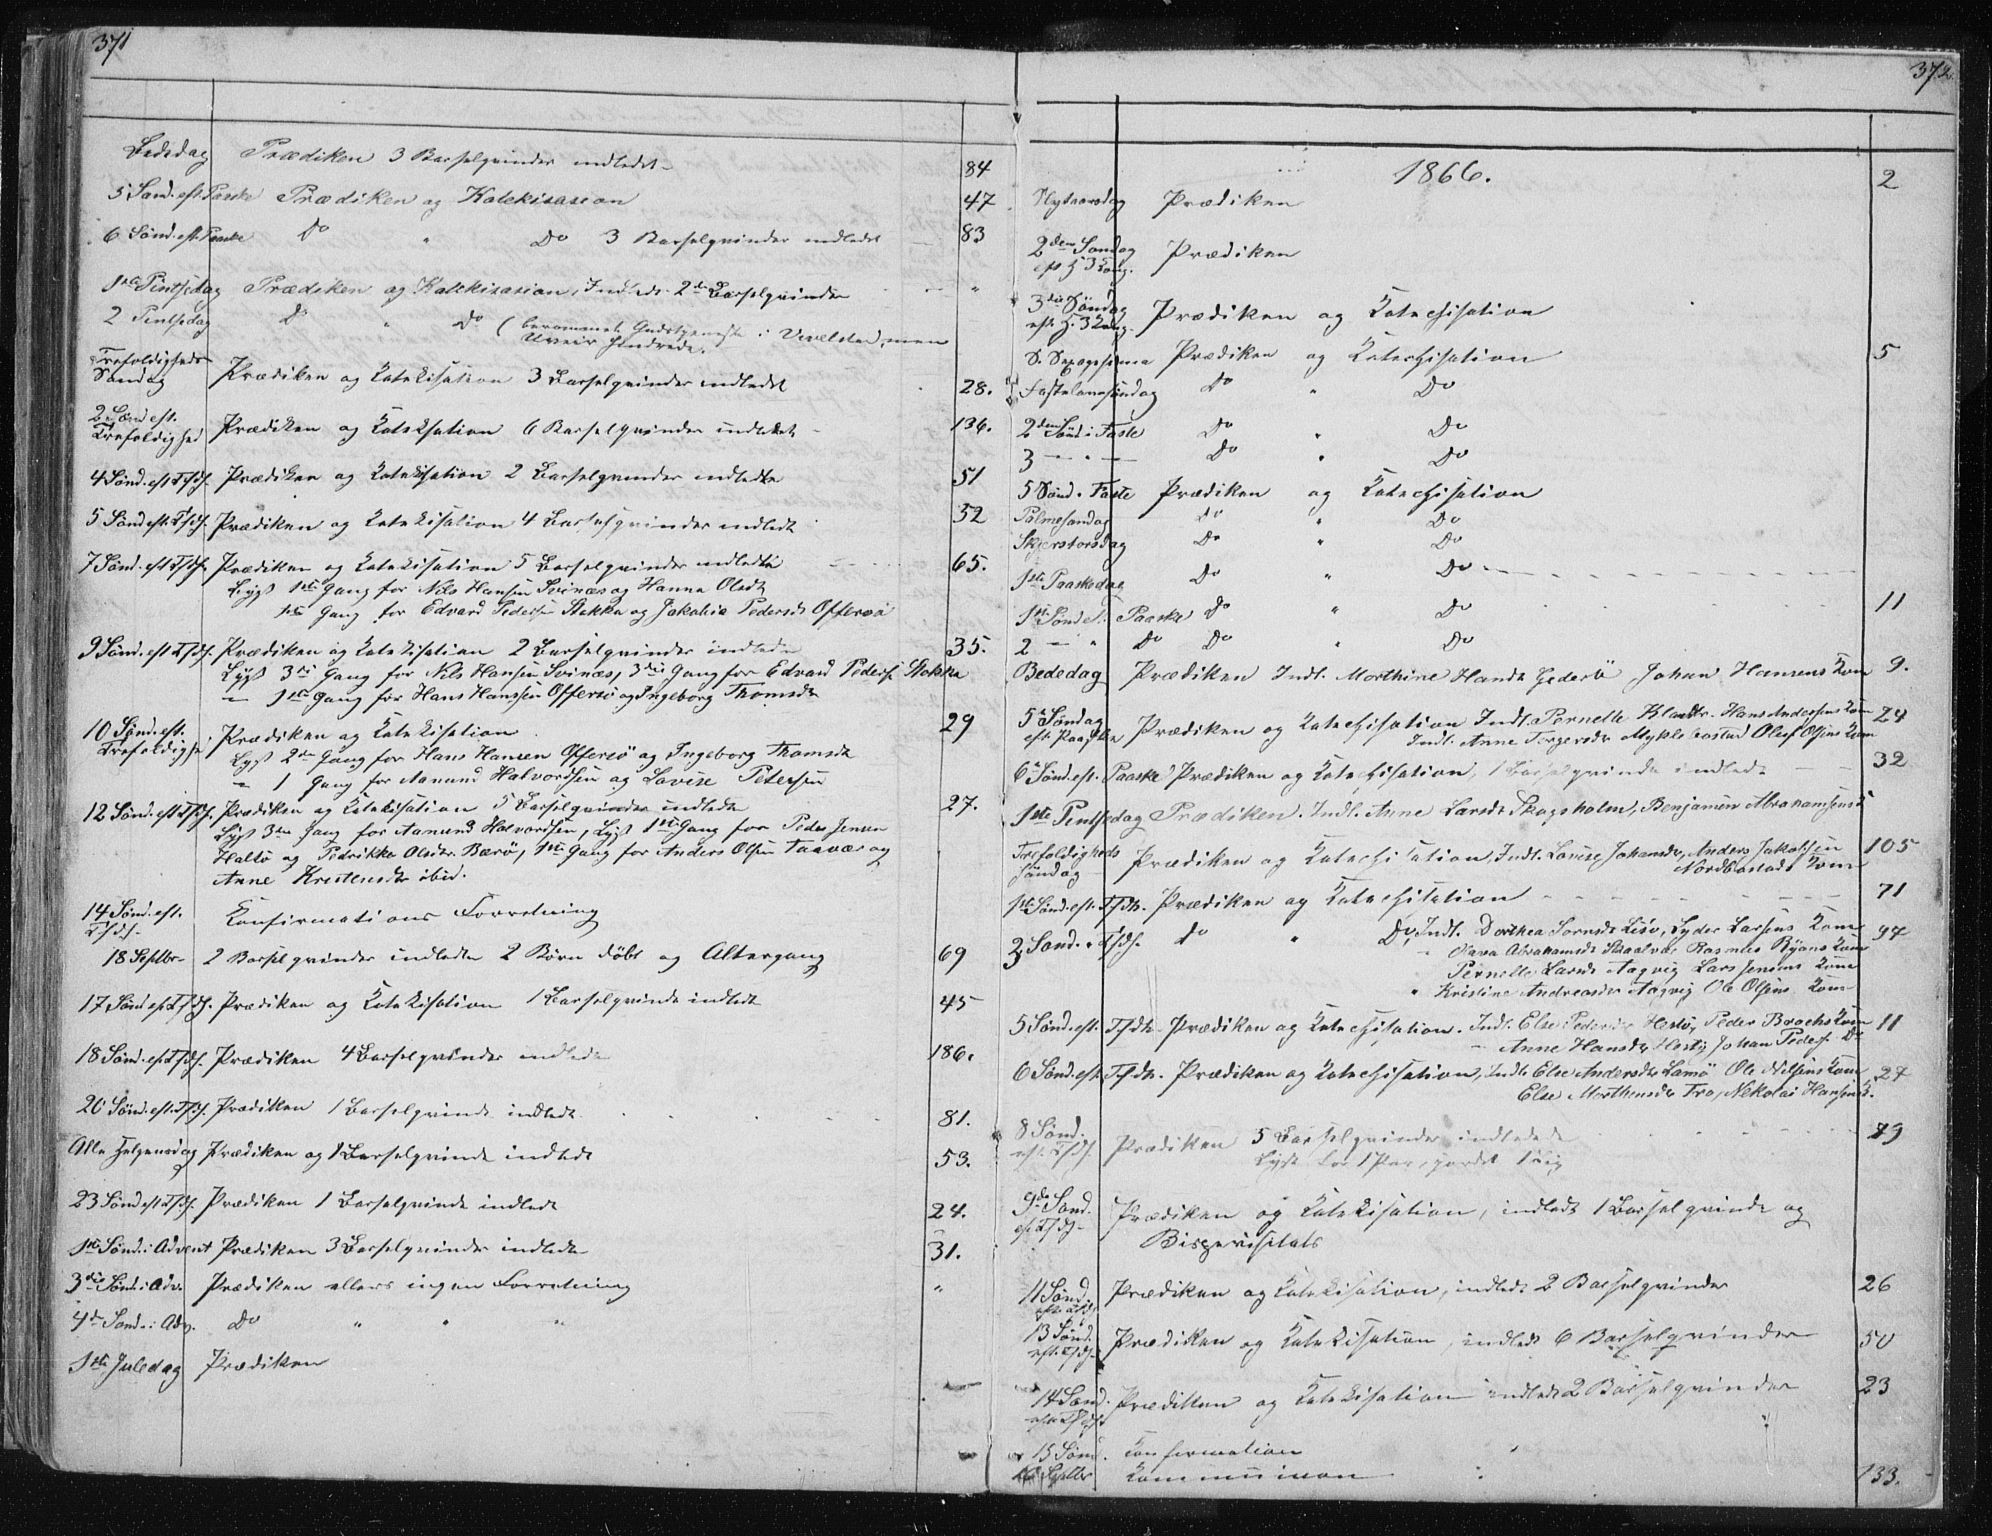 371
Bededag Prædiken 3 Barselqvinder indledet 84
5 Sønd. eft. Paaske Prædiken og Katekisasion 47
6 Sønd. eft. Paaske Do " Do 3 Barselqvinder indledet 83
1ste Pintsedag Prædiken og Katekisasion, Indleds. 2de Barselqvinder "
2 Pintsedag Do " Do (berammet Gudstjeneste i Vevelstad, men
Uveir hindrede.
Trefoldigheds
Søndag Prædiken og Katekisation 3 Barselqvinder indledet 28.
2 Sønd. eft.
Trefoldighed Prædiken og Katekisation 6 Barselqvinder indledet 136.
4 Sønd. eft. Tfdh. Prædiken og Katekisation 2 Barselqvinder indledte 51
5 Sønd. eft. Tfdh. Prædiken og Katekisation 4 Barselqvinder indledt 32
7 Sønd. eft. Tfdh. Prædiken og Katekisation 5 Barselqvinder indledte 65.
Lyst 1ste Gang for Nils Hansen Svinæs og Hanna Olsdt
1ste Gang for Edvard Peders. Stokka og Jakobia Pedersdt Offersø
9 Sønd. eft. Tfdh. Prædiken og Katekisation 2 Barselqvinder indledte 35.
Lyst 3die Gang for Nils Hansen Svinæs, 3die Gang for Edvard Peders. Stokka
— 1ste Gang for Hans Hanssen Offersø og Ingeborg Thomsdt
10 Sønd. eft.
Trefoldighed Prædiken og Katekisation 29
Lyst 2den Gang for Hans Hansen Offersö og Ingeborg Thomsdt
" 1 Gang for Aamund Halvordsen og Lovise Petersen
12 Sønd. eft. Tfdh. Prædiken og Katekisation 5 Barselqvinder indledte 27.
Lyst 3die Gang for Aamund Halvordsen, Lyst 1ste Gang for Peder Jensen
Haltö og Pedrikke Olsdtr. Bærø, 1ste Gang for Anders Olsen Taavær og
Anne Kristensdtr ibid.
14 Sønd. eft.
Tfdh. Konfirmations Forretning
18 Septbr. 2 Barselqvinder indledte 2 Børn döbt og Altergang 69
17 Sønd. eft. Tfdh. Prædiken og Katekisation 1 Barselqvinde indledt 45
18 Sønd. eft. Tfdh. Prædiken 4 Barselqvinder indledte 186.
20 Sønd. eft. Tfdh. Prædiken 1 Barselqvinde indledt 81.
Alle Helgensdag Prædiken og 1 Barselqvinde indledt 53.
23 Sønd. eft. Tfdh. Prædiken 1 Barselqvinde indledt 24.
1ste Sønd. i Advent Prædiken 3 Barselqvinder indledte 31.
3die Sønd. i Adv. Prædiken ellers ingen Forretning "
4de Sønd. i Adv. Do " " "
1ste Juledag Prædiken
372
1866. 2
Nytaarsdag Prædiken
2den Søndag
eft. H. 3 Kong. Prædiken
3die Søndag
eft. H. 3 Kong. Prædiken og Katechisation
S. Sexagesima Prædiken og Katechisation 5
Fastelavnssöndag Do " Do
2den Sønd. i Faste Do " Do
3 — " — Do " Do
5 Sønd. i Faste Prædiken og Katechisation
Palmesøndag Do " Do
Skjerstorsdag Do " Do
1ste Paaskedag Do " Do
1ste Sønd. e. Paaske Do " Do 11
2 — " Do Do " Do
Bededag Prædiken Indl. Morthine Hansdt Gederö Johan Hansens Kone 9.
5te Søndag
eft. Paaske Prædiken og Katechisation Indl. Pernelle Hans Andersens Kone 24
Indl. Anne Torgersdt Myklebostad Oluf Olsens Kone
6te Sønd. eft. Paaske Prædiken og Katechisation, 1 Barselqvinde indledt 32
1ste Pintsedag Prædiken. Indl. Anne Larsdt Skogsholm, Benjamin Abrahamsens K
Trefoldigheds
Søndag Prædiken og Katechisation, Indl. Lovise Johansdt, Anders Jakobsen 105
Nordbostads Kone
1ste Sønd. eft. Tfdh. Prædiken og Katechisation 71
3 Sønd. e. Tfdh. Do " Do, Indl. Dorthea Sørensdt Lisø, Lyder Larsens Kone 97
" Abrahamsdt Skaalvær Rasmus Kone
Pernelle Larsdt Aagvig Lars Jensens Kone
" Kristine Andreasdt Aagvig Ole Olsens Kone
5 Sønd. eft. Tfdh. Prædiken og Katechisation. Indl. Else Pedersdt Hestø, Peder Brochs Kone 11
— Anne Hansdt Hestø Johan Peders. Do
6 Sønd. eft. Tfdh. Prædiken og Katechisation, Indl. Else Andersdt Lamö Ole Nilsens Kone 27
Else Morthensdt Tro, Nekolai Hansens K.
8 Sønd.
eft. Tfdh. Prædiken 5 Barselqvinder indledede 79
Lyst for 1 Par, jordet 1 Lig
9de Sønd.
eft. Tfdh. Prædiken og Katekisation, indledt 1 Barselqvinde og
Bispevisitats
11 Sønd.
eft. Tfdh. Prædiken og Katekisation, indledt 2 Barselqvinder 26
13 Sønd.
eft. Tfdh. Prædiken og Katekisation, indledt 6 Barselqvinder 50
14 Sønd.
eft. Tfdh. Prædiken og Katekisation indledt 2 Barselqvinder 23
15 Sønd. Confirmation
Septbr Kommunion 133.